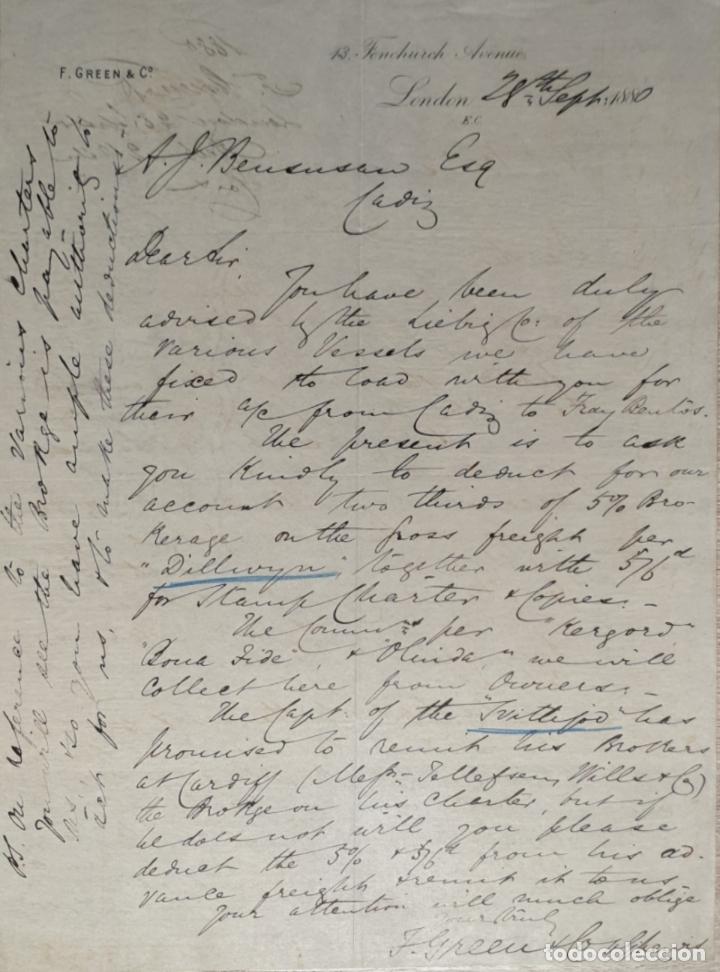 F. GREEN & Co
13. Fenchurch Avenue
London 28th Sept. 1880
E.C.
A. J. Bensusan Esq
Cadiz
Dear Sir
You have been duly
advised by the Liebig Co: of the
various Vessels we have
fixed to load with you for
their a/c from Cadiz to Fray Bentos.
The present is to ask
you kindly to deduct for our
account two thirds of 5% Bro-
kerage on the gross freight per
"Dillwyn" together with 5/6d
for Stamp Charter & Copies. -
The Commns per "Kergord"
"Bona Fide", & "Olinda", we will
collect here from Owners. -
The Capt. of the "Svithjod" has
promised to remit his Brokers
at Cardiff (Messrs Tellefsen, Wills & Co)
the Brokge on his charter, but if
he does not will you please
deduct the 5% & 5/6d from his ad-
vance freight & remit it to us
Your attention will much oblige
Yours truly
F. Green & Co
PS. On reference to the various charters
you will see the Brokge is payable to
us, & so you have ample authority to
act for us, & to make these deductions -
todocoleccion